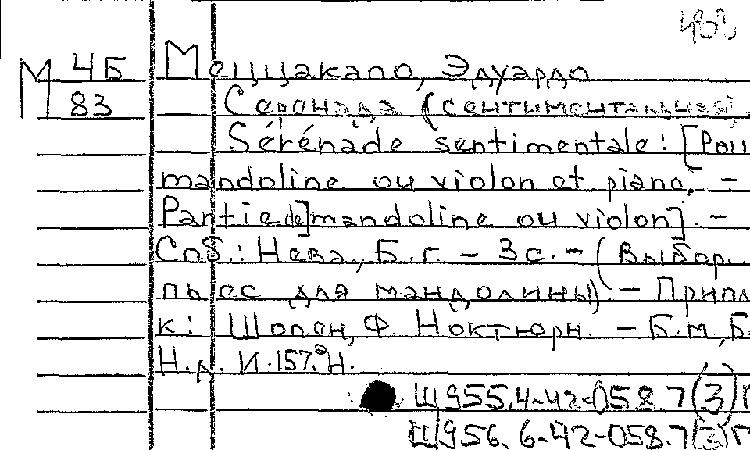 М 4Б Меццакапо, Эдуардо
83 Серенада (сентиментальная)
Sérénade sentimentale: [Pour
mandoline ou violon et piano. –
Partie [de] mandoline ou violon]. –
Спб.: Нева, Б.г. – 3 с. – (Выбор.
пьес для мандолины). – Прил.
к: Шопен, Ф Ноктюрн. – Б.м, Б.
Н.д. И.157.Н.
Щ955.4-42-058.7(3)П
Щ956.6-42-058.7(3)П